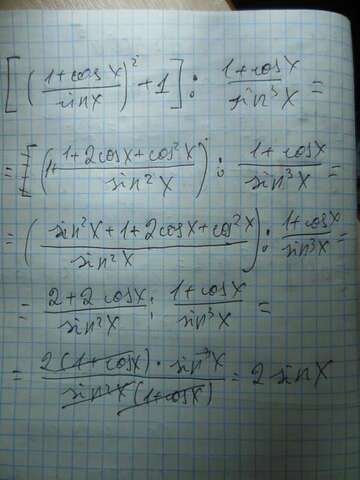 [((1+cosX)/(sinX))² + 1] : (1+cosX)/(sin³X) =
= (1+ (1+2cosX+cos²X)/(sin²X)) : (1+cosX)/(sin³X) =
= ((sin²X+1+2cosX+cos²X)/(sin²X)) : (1+cosX)/(sin³X) =
= (2+2cosX)/(sin²X) : (1+cosX)/(sin³X) =
= (2(1+cosX) · sin³X)/(sin²X (1+cosX)) = 2 sinX